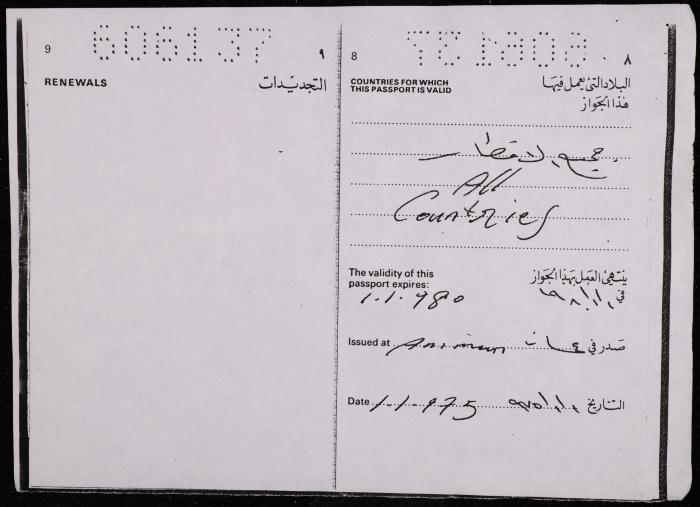 608137
9
٩
RENEWALS
التجديدات
8
٨
COUNTRIES FOR WHICH
THIS PASSPORT IS VALID
البلاد التي يعمل فيها
هذا الجواز
جميع الاقطار
All
Countries
The validity of this
passport expires:
1.1.980
ينتهي العمل بهذا الجواز
في
Issued at Amman
صدر في عمان
Date 1.1.975
التاريخ